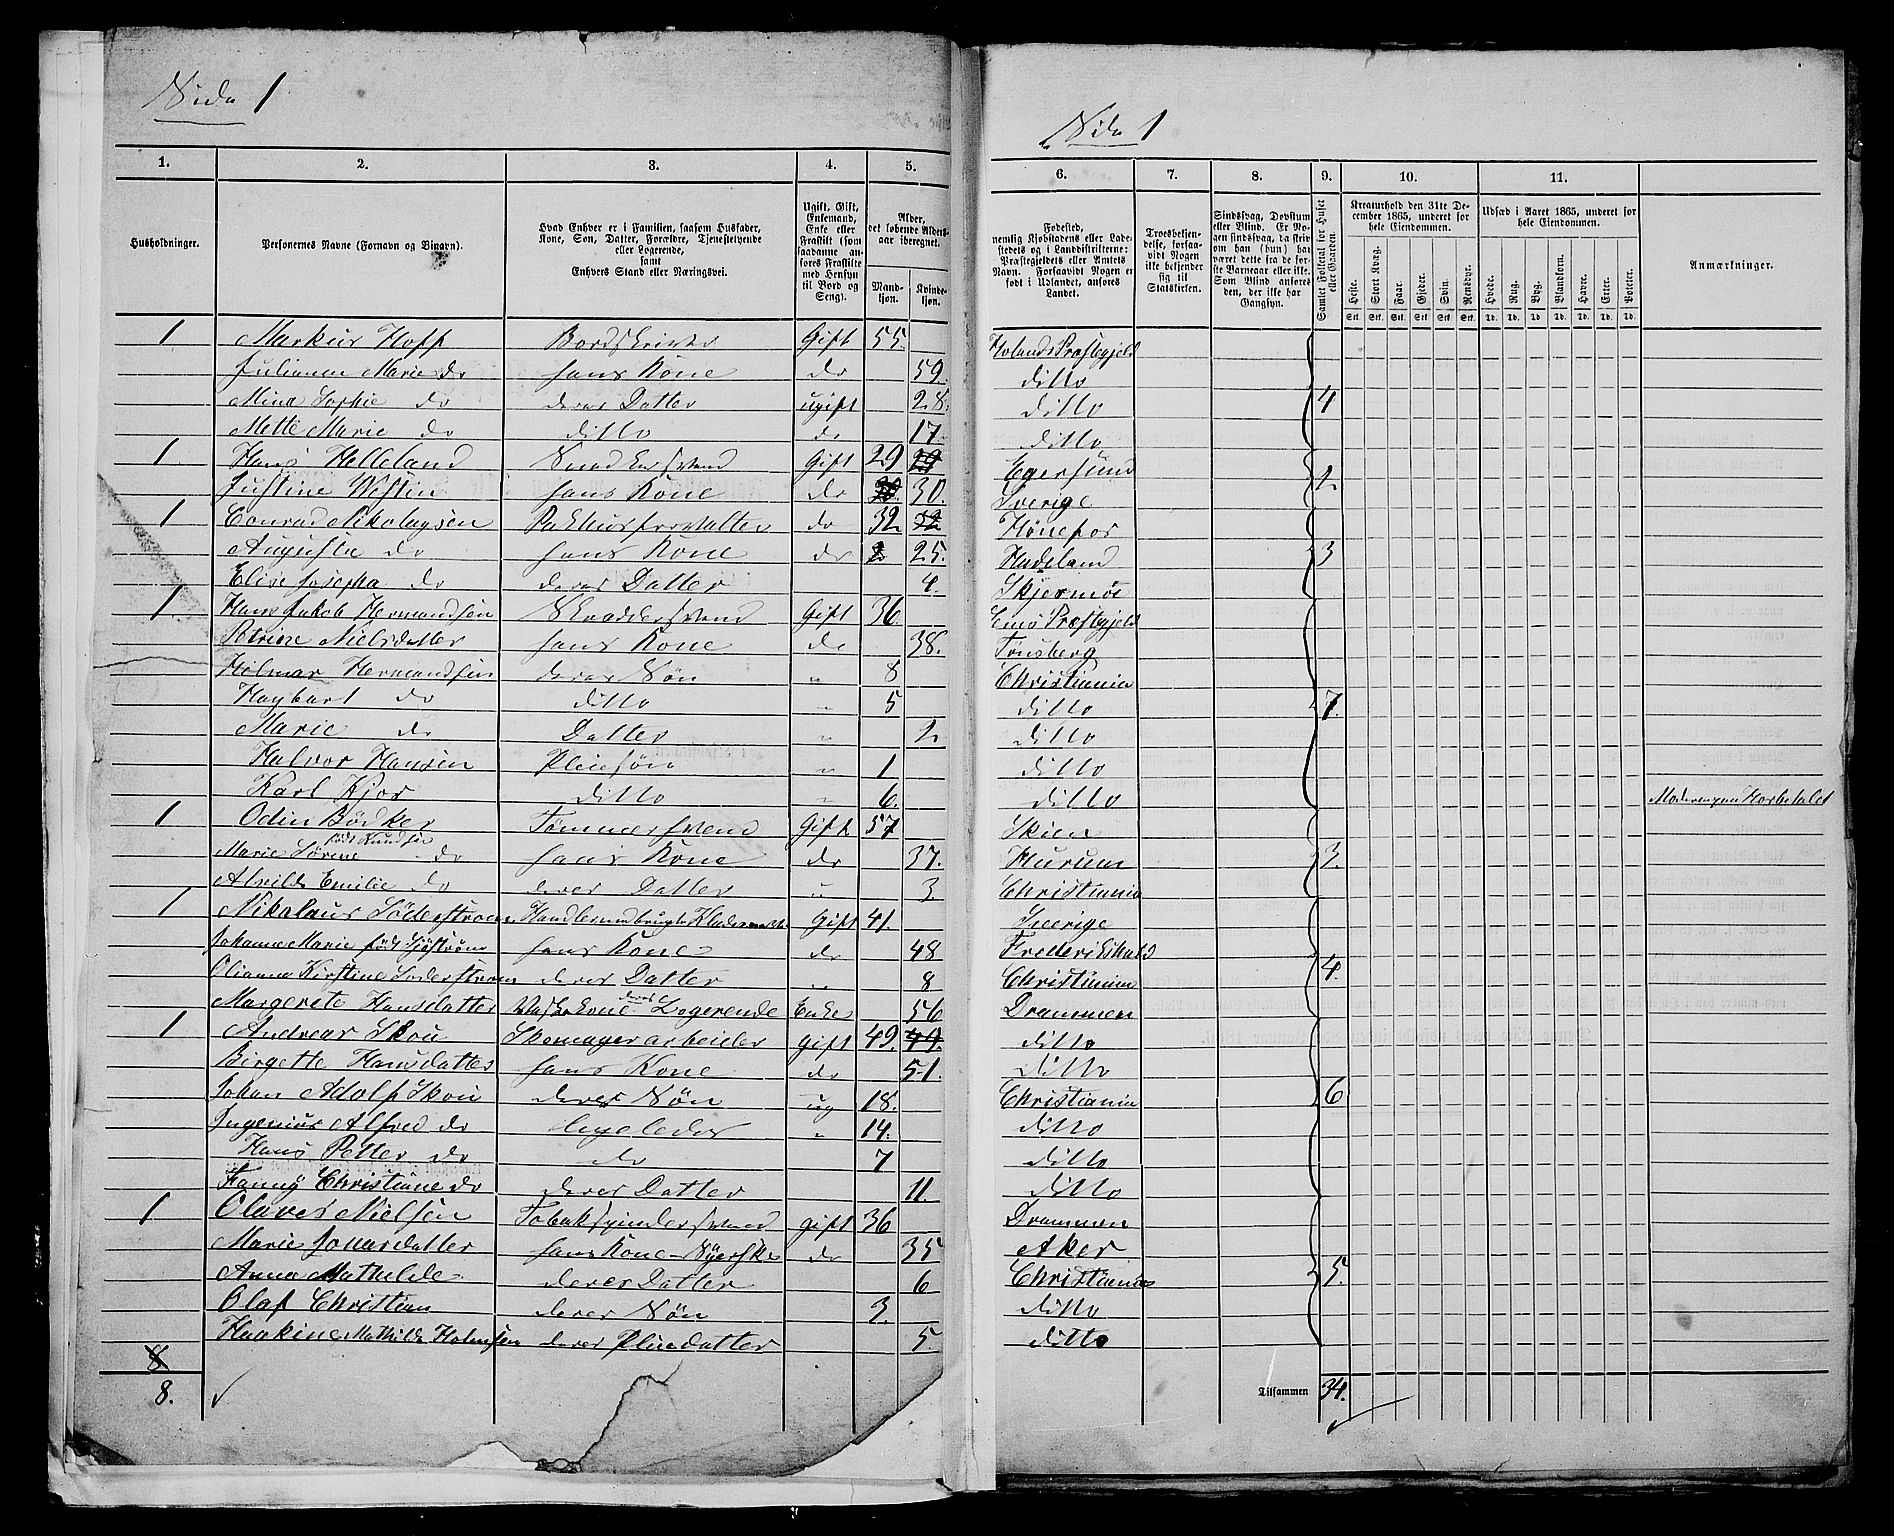 Side 1
1. 2. 3. 4. 5.
Husholdninger.
Personernes Navne (Fornavn og Binavn).
Hvad Enhver er i Familien, saasom Husfader,
Kone, Søn, Datter, Forældre, Tjenestetyende
eller Logerende,
samt
Enhvers Stand eller Næringsvei.
Ugift, Gift,
Enkemand,
Enke eller
Fraskilt (som
saadanne an-
føres Fraskilte
med Hensyn
til Bord og
Seng).
Alder,
det løbende Alders-
aar iberegnet.
Mand-
kjøn.
Kvinde-
kjøn.
1 Markus Hoff Gift 55.
Juliane Marie do hans Kone do 59.
Mina Sophie do deres Datter ugift 28.
Mette Marie do ditto do 17.
1. Hans Helleland Snedkersvend Gift 29 29
Justine Westin hans Kone do 30 30.
1 Conrad Nikolaysen Pakhusforvalter do 32 32
Augusta do hans Kone do 2 25.
Elise Josepha do deres Datter 4.
1. Hans Jakob Hermandsen Skræddersvend Gift 36.
Petrine Nielsdatter hans Kone do 38.
Hilmar Hermandsen deres Søn " 8
Haybart do ditto " 5
Marie do Datter " 2
Halvor Hansen Pleiesøn " 1
Karl Kjør ditto " 6.
1 Odin Bödker Tømmersvend Gift 57
født Knudsen
Marie Sørine do hans Kone do 37.
Alvilde Emilie do deres Datter " 3.
1 Nikolaus Söderstrøm Gift 41.
Johanne Marie født Sjøstrøm hans Kone do 48
Olianna Kirstine Søderstrøm deres Datter " 8
Margerete Hansdatter Vaskekone deres Logerende Enke 56
1 Andreas Skou Skomagerarbeider gift 49. 49.
Birgette Hansdatter hans Kone do 51.
Johan Adolf Skou deres Søn ug 18.
Ingenius Alfred do ligeledes " 14.
Hans Petter do do 7
Fanny Christiane do deres Datter 11.
1 Olaves Nielsen Tobakspindersvend gift 36
Marie Jonasdatter hans Kone - Syerske do 35
Anna Mathilde deres Datter 6
Olaf Christian deres Søn 3.
Haakine Mathilde Holmsen deres Pleiedatter 5.
8
8.
Side 1
6. 7. 8. 9. 10. 11.
Fødested,
nemlig Kjøbstadens eller Lade-
stedets og i Landdistrikterne:
Præstegjeldets eller Amtets
Navn. Forsaavidt Nogen er
født i Udlandet, anføres
Landet.
Troesbekjen-
delse, forsaa-
vidt Nogen
ikke bekjender
sig til
Statskirken.
Sindssvag, Døvstum
eller Blind. Er No-
gen sindssvag, da skriv
om han (hun) har
været dette fra de før-
ste Barneaar eller ikke.
Som Blind anføres
den, der ikke har
Gangsyn.
Samlet Folketal for Huset
eller Gaarden.
Kreaturhold den 31te De-
cember 1865, underet for
hele Eiendommen.
Heste. Stort Kvæg. Faar. Gjeder. Svin. Rensdyr.
Stk. Stk. Stk. Stk. Stk. Stk.
Udsæd i Aaret 1865, underet for
hele Eiendommen.
Hvede. Rug. Byg. Blandkorn. Havre. Erter. Poteter.
Td. Td. Td. Td. Td. Td. Td.
Anmærkninger.
Hølands Præstegjeld
ditto
ditto 4
ditto
Egersund 2
Sverige
Hønefos
Hadeland 3
Skjermoe
Præstegjeld
Tønsberg
Christiania
ditto 7.
ditto
ditto
ditto
Skien
Hurum 3.
Christiania
Sverige
Frederikshald
Christiania 4.
Drammen
ditto
ditto
Christiania 6
ditto
ditto
ditto
Drammen
Aker
Christiania 5.
ditto
ditto
Tilsammen 34.